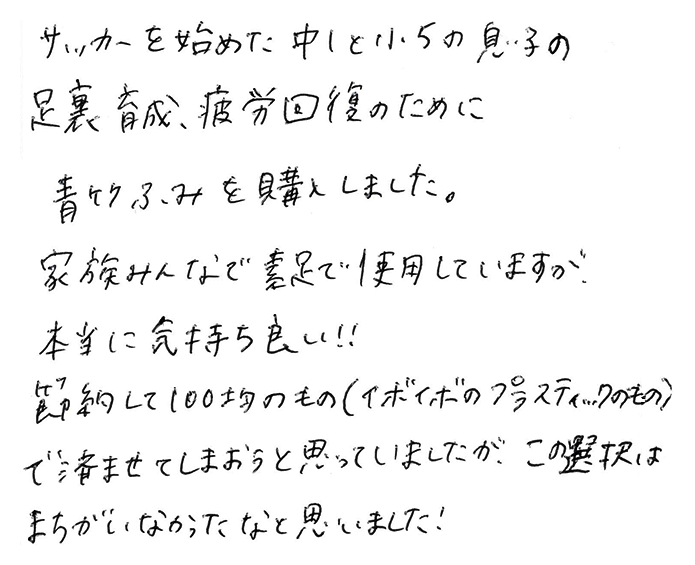 サッカーを始めた中1と小5の息子の
足裏育成、疲労回復のために
青竹ふみを購入しました。
家族みんなで素足で使用していますが、
本当に気持ち良い!!
節約して100均のもの(イボイボのプラスティックのもの)
で済ませてしまおうと思っていましたが、この選択は
まちがいなかったなと思いました!